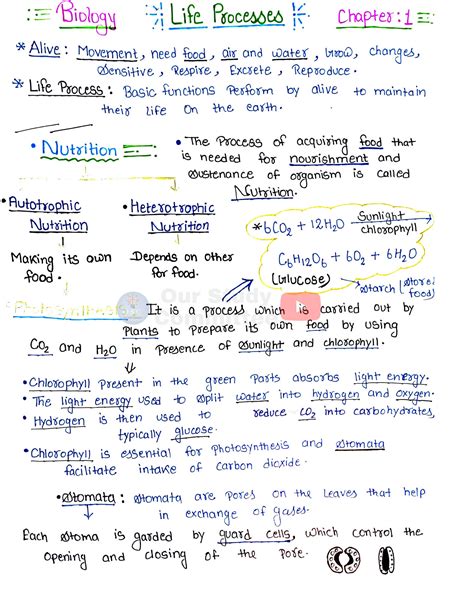 Biology Life Processes Chapter: 1
* Alive: Movement, need food, air and water, Grow, changes,
Sensitive, Respire, Excrete, Reproduce.
* Life Process: Basic functions perform by alive to maintain
their life on the earth.
• Nutrition
• The Process of acquiring food that
is needed for nourishment and
sustenance of organism is called
Nutrition.
• Autotrophic
Nutrition
Making its own
food.
• Heterotrophic
Nutrition
Depends on other
for food.
*6CO2 + 12H2O Sunlight
chlorophyll
C6H12O6 + 6O2 + 6H2O
(Glucose)
starch (stored
food)
Photosynthesis: It is a process which is carried out by
plants to prepare its own food by using
CO2 and H2O in presence of sunlight and chlorophyll.
• Chlorophyll present in the green parts absorbs light energy.
• The light energy used to split water into hydrogen and oxygen.
• Hydrogen is then used to reduce CO2 into carbohydrates,
typically glucose.
• Chlorophyll is essential for photosynthesis and stomata
facilitate intake of carbon dioxide.
• Stomata: Stomata are pores on the leaves that help
in exchange of gases.
Each stoma is garded by guard cells, which control the
opening and closing of the pore.
Our Study